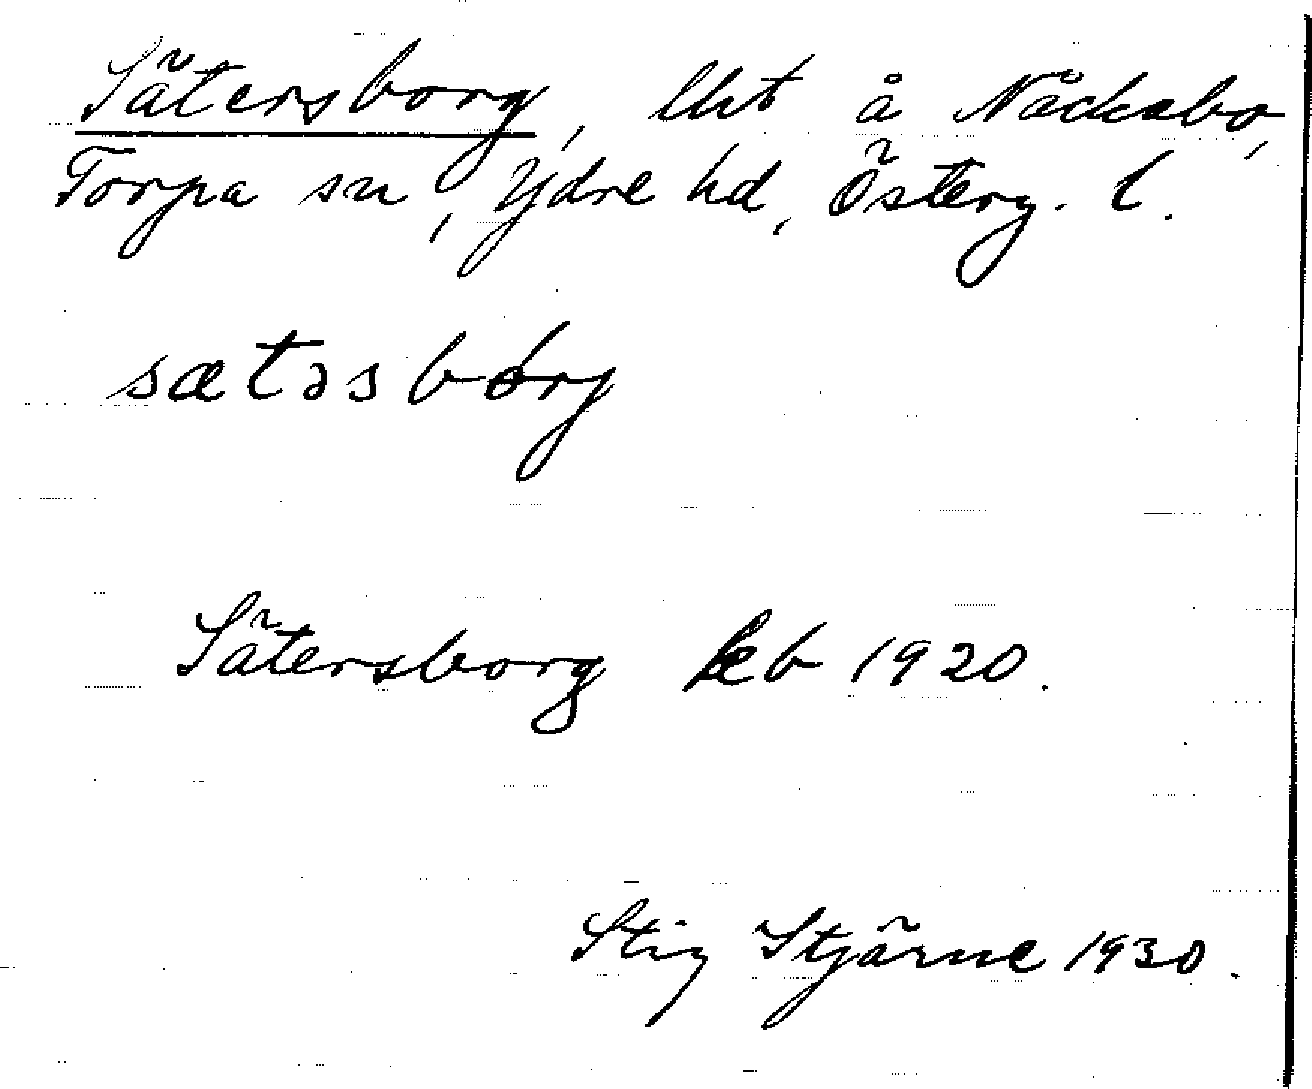 Sätersborg, lht å Näcksbo,
Torpa sn, Ydre hd, Österg. l.
sætəsbórj
Sätersborg Leb 1920.
Stig Stjärne 1930.